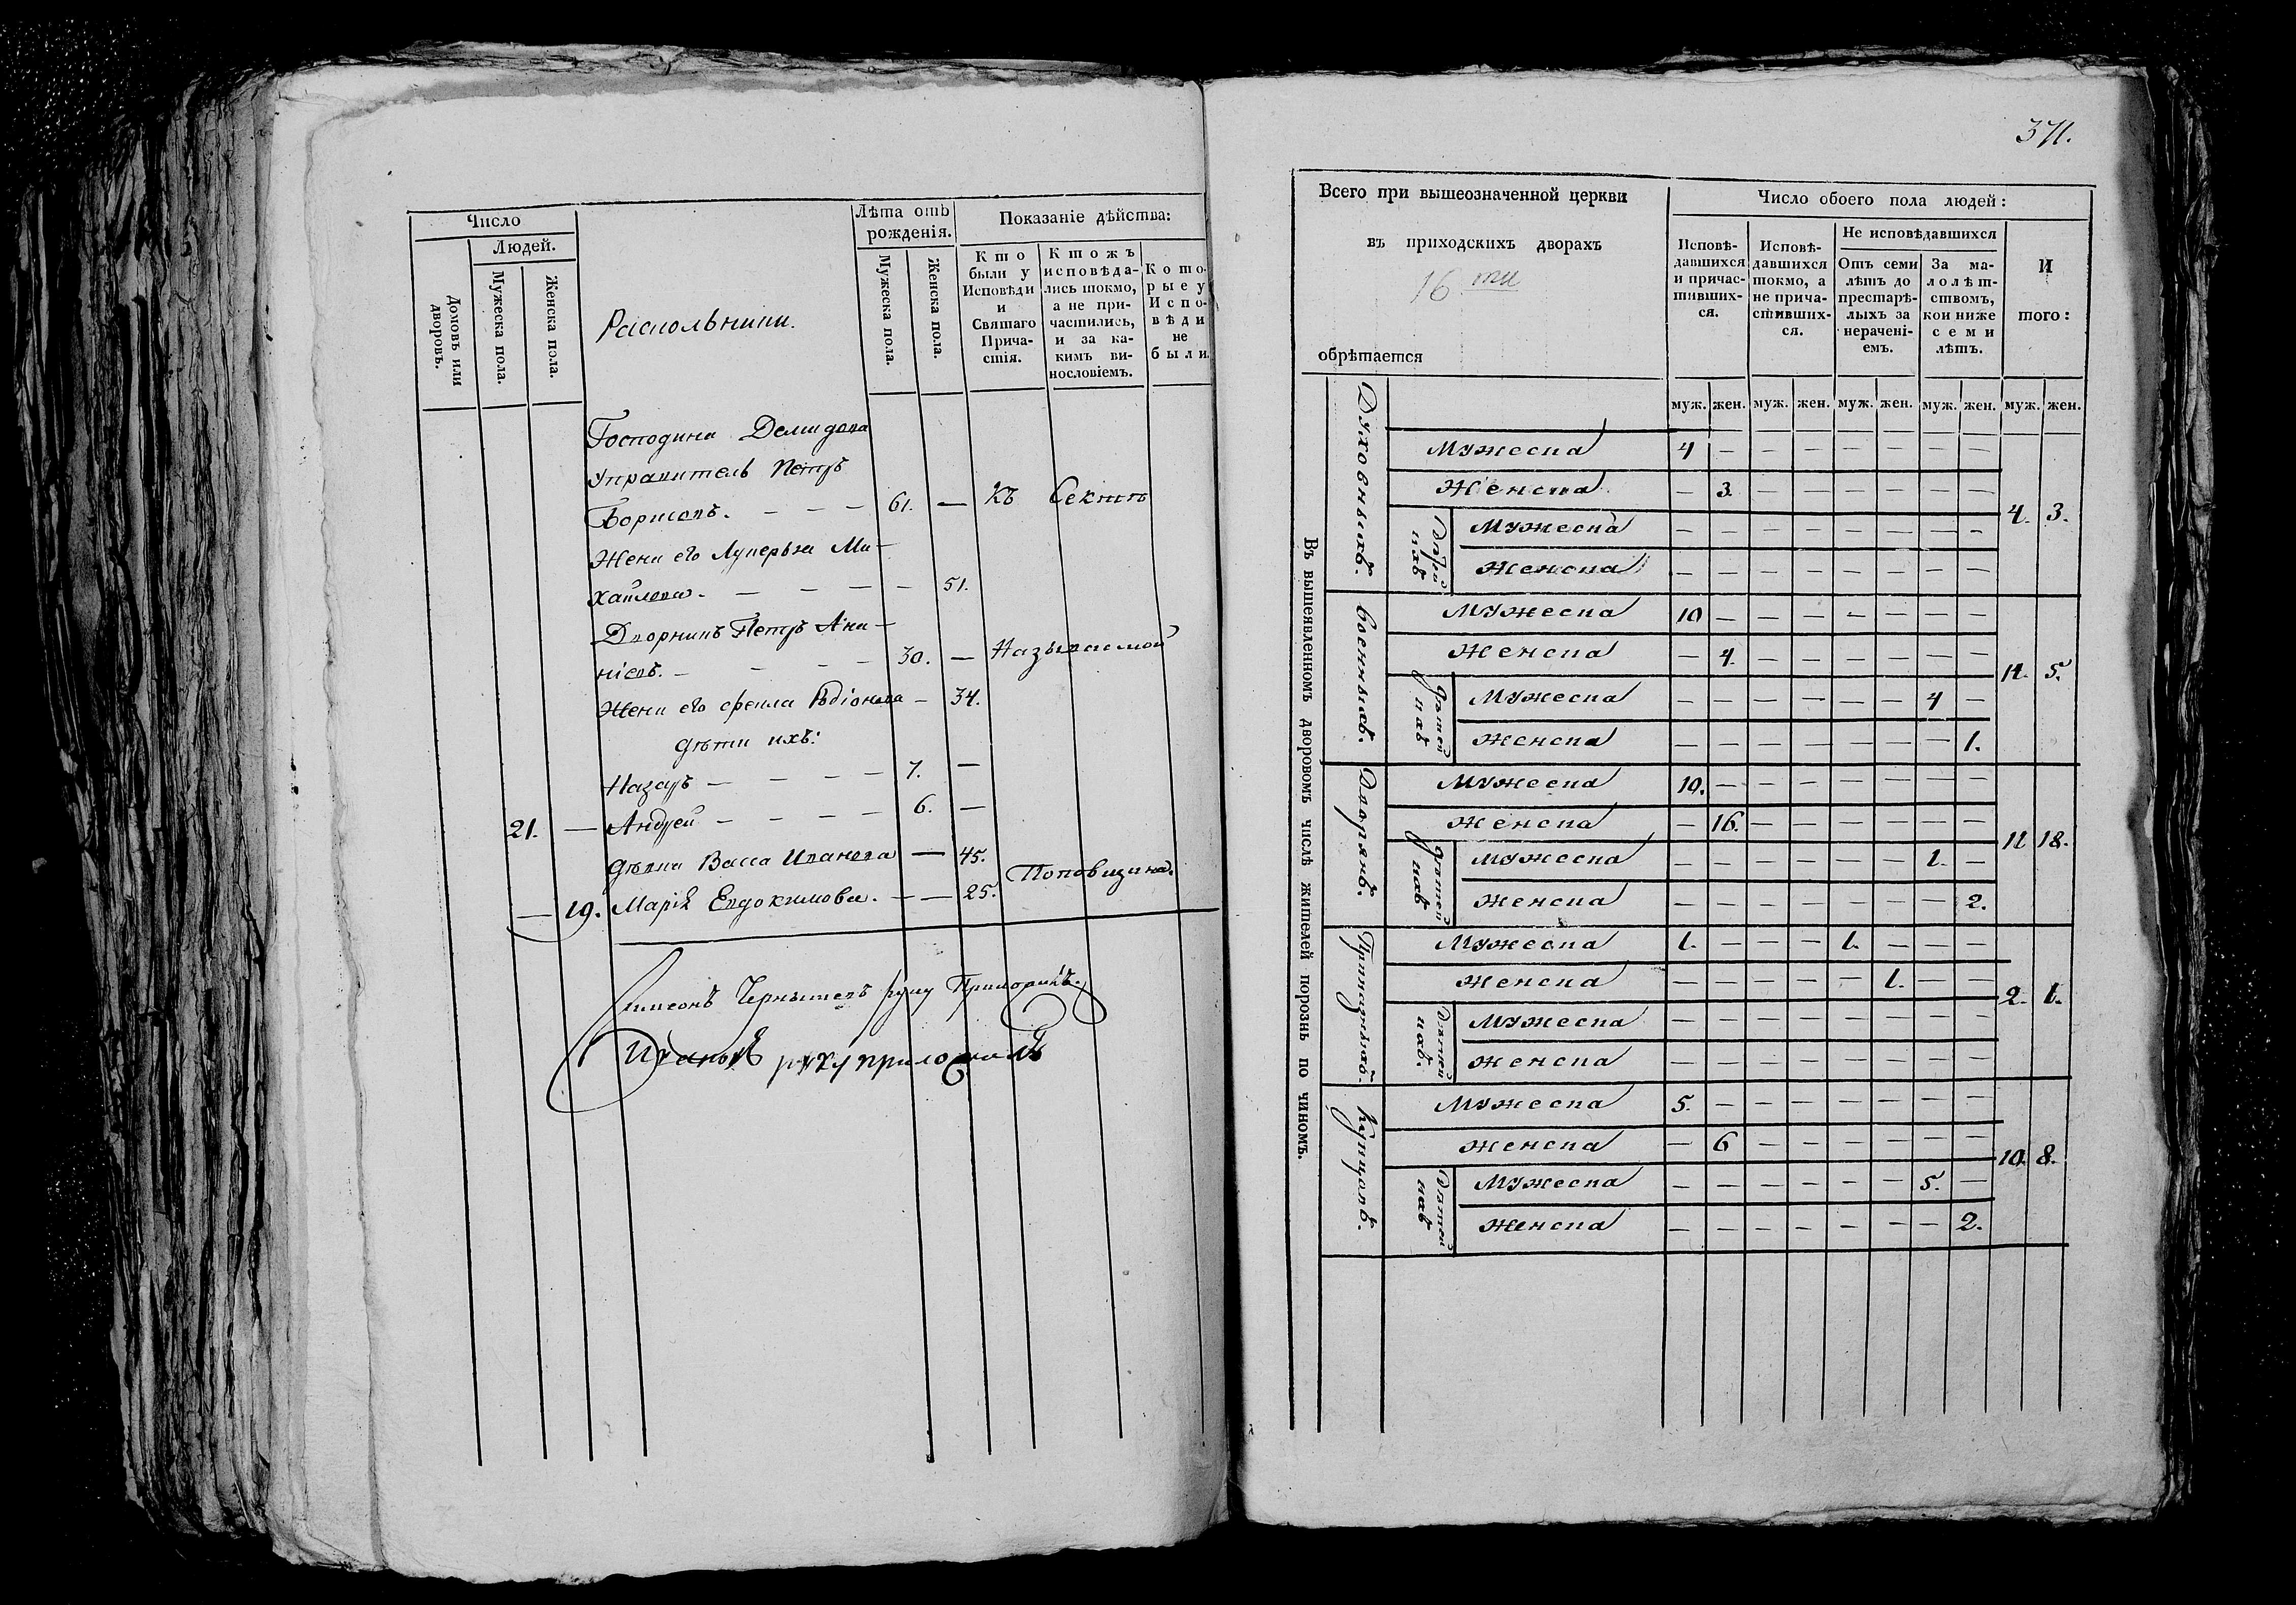 Число
Людей.
Домовъ или дворовъ.
Мужеска пола.
Женска пола.
Раскольники.
Лѣта отъ рожденія.
Мужеска пола.
Женска пола.
Показаніе дѣйства:
Кто были у Исповѣди и Святаго Причастія.
Ктожъ исповѣдались токмо, а не причастились, и за какимъ винословіемъ.
Которые у Исповѣди не были.
Господина Демидова
Управитель Петръ
Борисовъ. — — — 61. — Къ Сектѣ
Жена его Лукерья Ми-
хайлова. — — — — 51.
Дворникъ Петръ
30. — Называемой
Жена его Фекла — 34.
дѣти ихъ:
Назаръ — — — — 7. —
21. — Андрей — — — — 6. —
дѣвки Васса Иванова — 45.
Поповщина.
— 19. Марія Евдокимова. — — 25.
Чернышевъ руку Приложилъ.
Ивановъ руку приложилъ
371.
Всего при вышеозначенной церкви
въ приходскихъ дворахъ
16 ти
обрѣтается
Число обоего пола людей:
Исповѣдавшихся и причастившихся.
Исповѣдавшихся токмо, а не причастившихся.
Не исповѣдавшихся
Отъ семи лѣтъ до престарѣлыхъ за нераченіемъ.
За малолѣтствомъ, кои ниже семи лѣтъ.
И того:
муж. жен. муж. жен. муж. жен. муж. жен. муж. жен.
Въ вышеявленномъ дворовомъ числѣ жителей порознь по чиномъ.
Духовныхъ.
Мужеска 4 — — — — — — —
Женска — 3. — — — — — —
4. 3.
Мужеска — — — — — — — —
Женска — — — — — — — —
Военныхъ.
Мужеска 10 — — — — — — —
Женска — 4. — — — — — —
14. 5.
дѣтей ихъ
Мужеска — — — — — — 4 —
Женска — — — — — — — 1.
Дворянъ.
Мужеска 10. — — — — — — —
Женска — 16. — — — — — —
11 18.
дѣтей ихъ
Мужеска — — — — — — 1. —
Женска — — — — — — — 2.
Приказныхъ.
Мужеска 1. — — — 1. — — —
Женска — — — — — 1. — —
2. 1.
дѣтей ихъ.
Мужеска — — — — — — — —
Женска — — — — — — — —
Купцовъ.
Мужеска 5. — — — — — — —
Женска — 6 — — — — — —
10. 8.
дѣтей ихъ
Мужеска — — — — — — 5. —
Женска — — — — — — — 2.